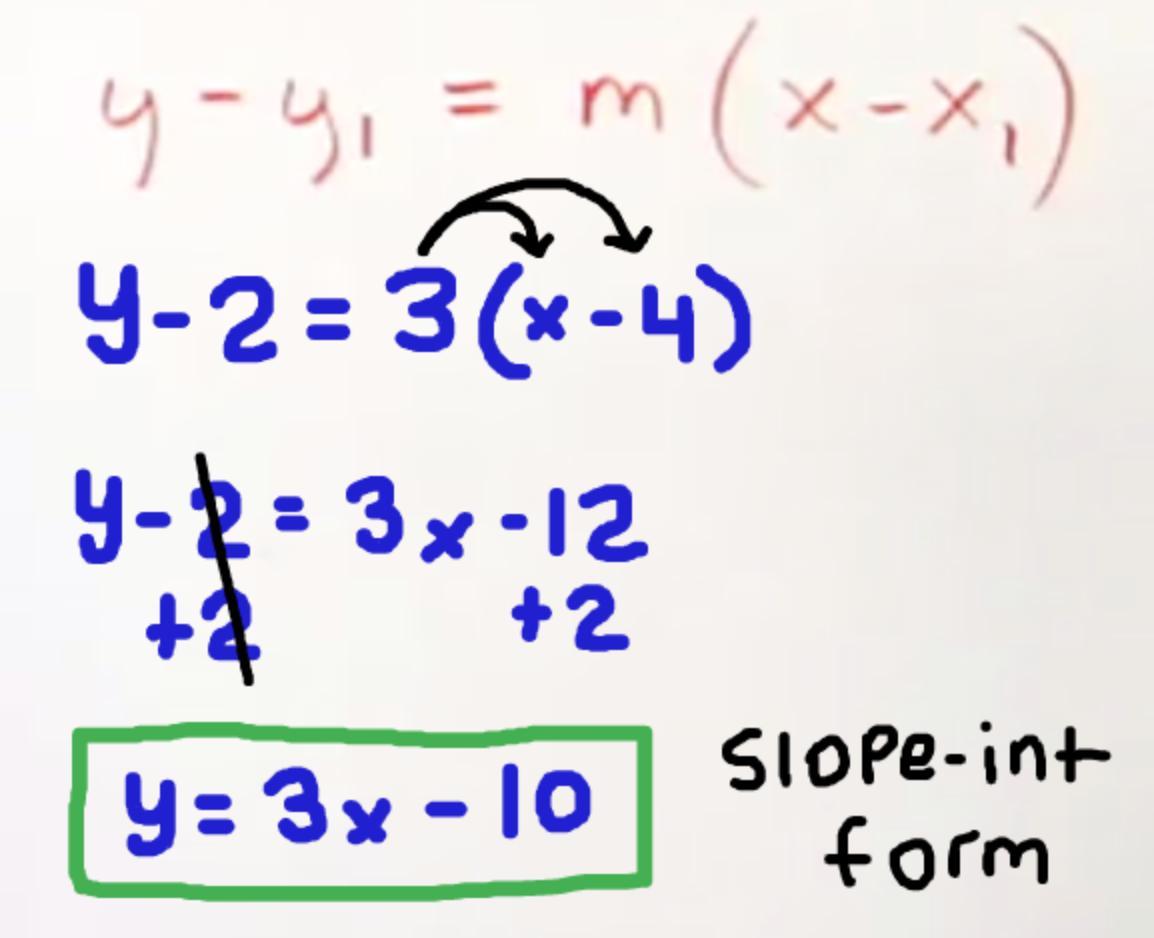 y - y₁ = m(x - x₁)
y - 2 = 3(x - 4)
y - 2 = 3x - 12
+2 +2
y = 3x - 10
slope-int
form